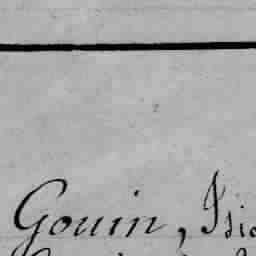 Gouin, Isid